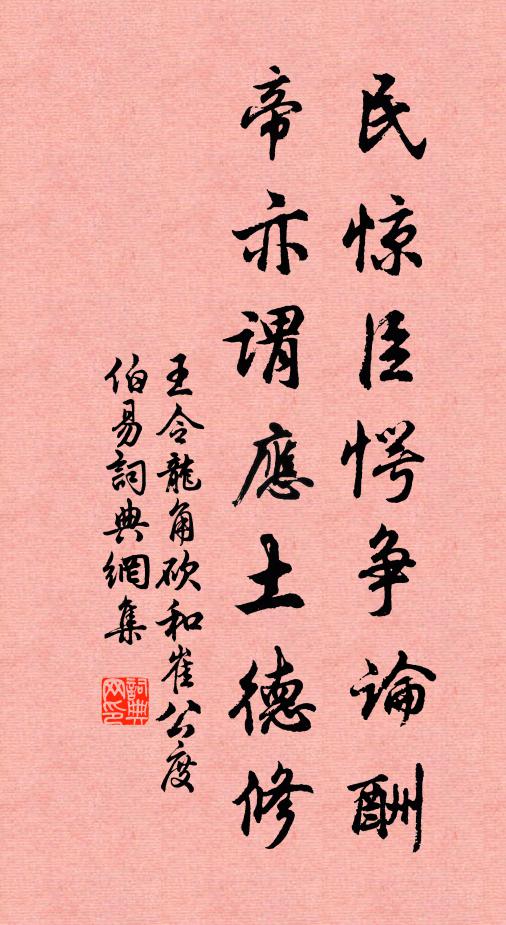 民惊臣愕争論酬
帝亦谓應土德修
王令龍角砍和崔公度
伯易詞典網集
詞典网印